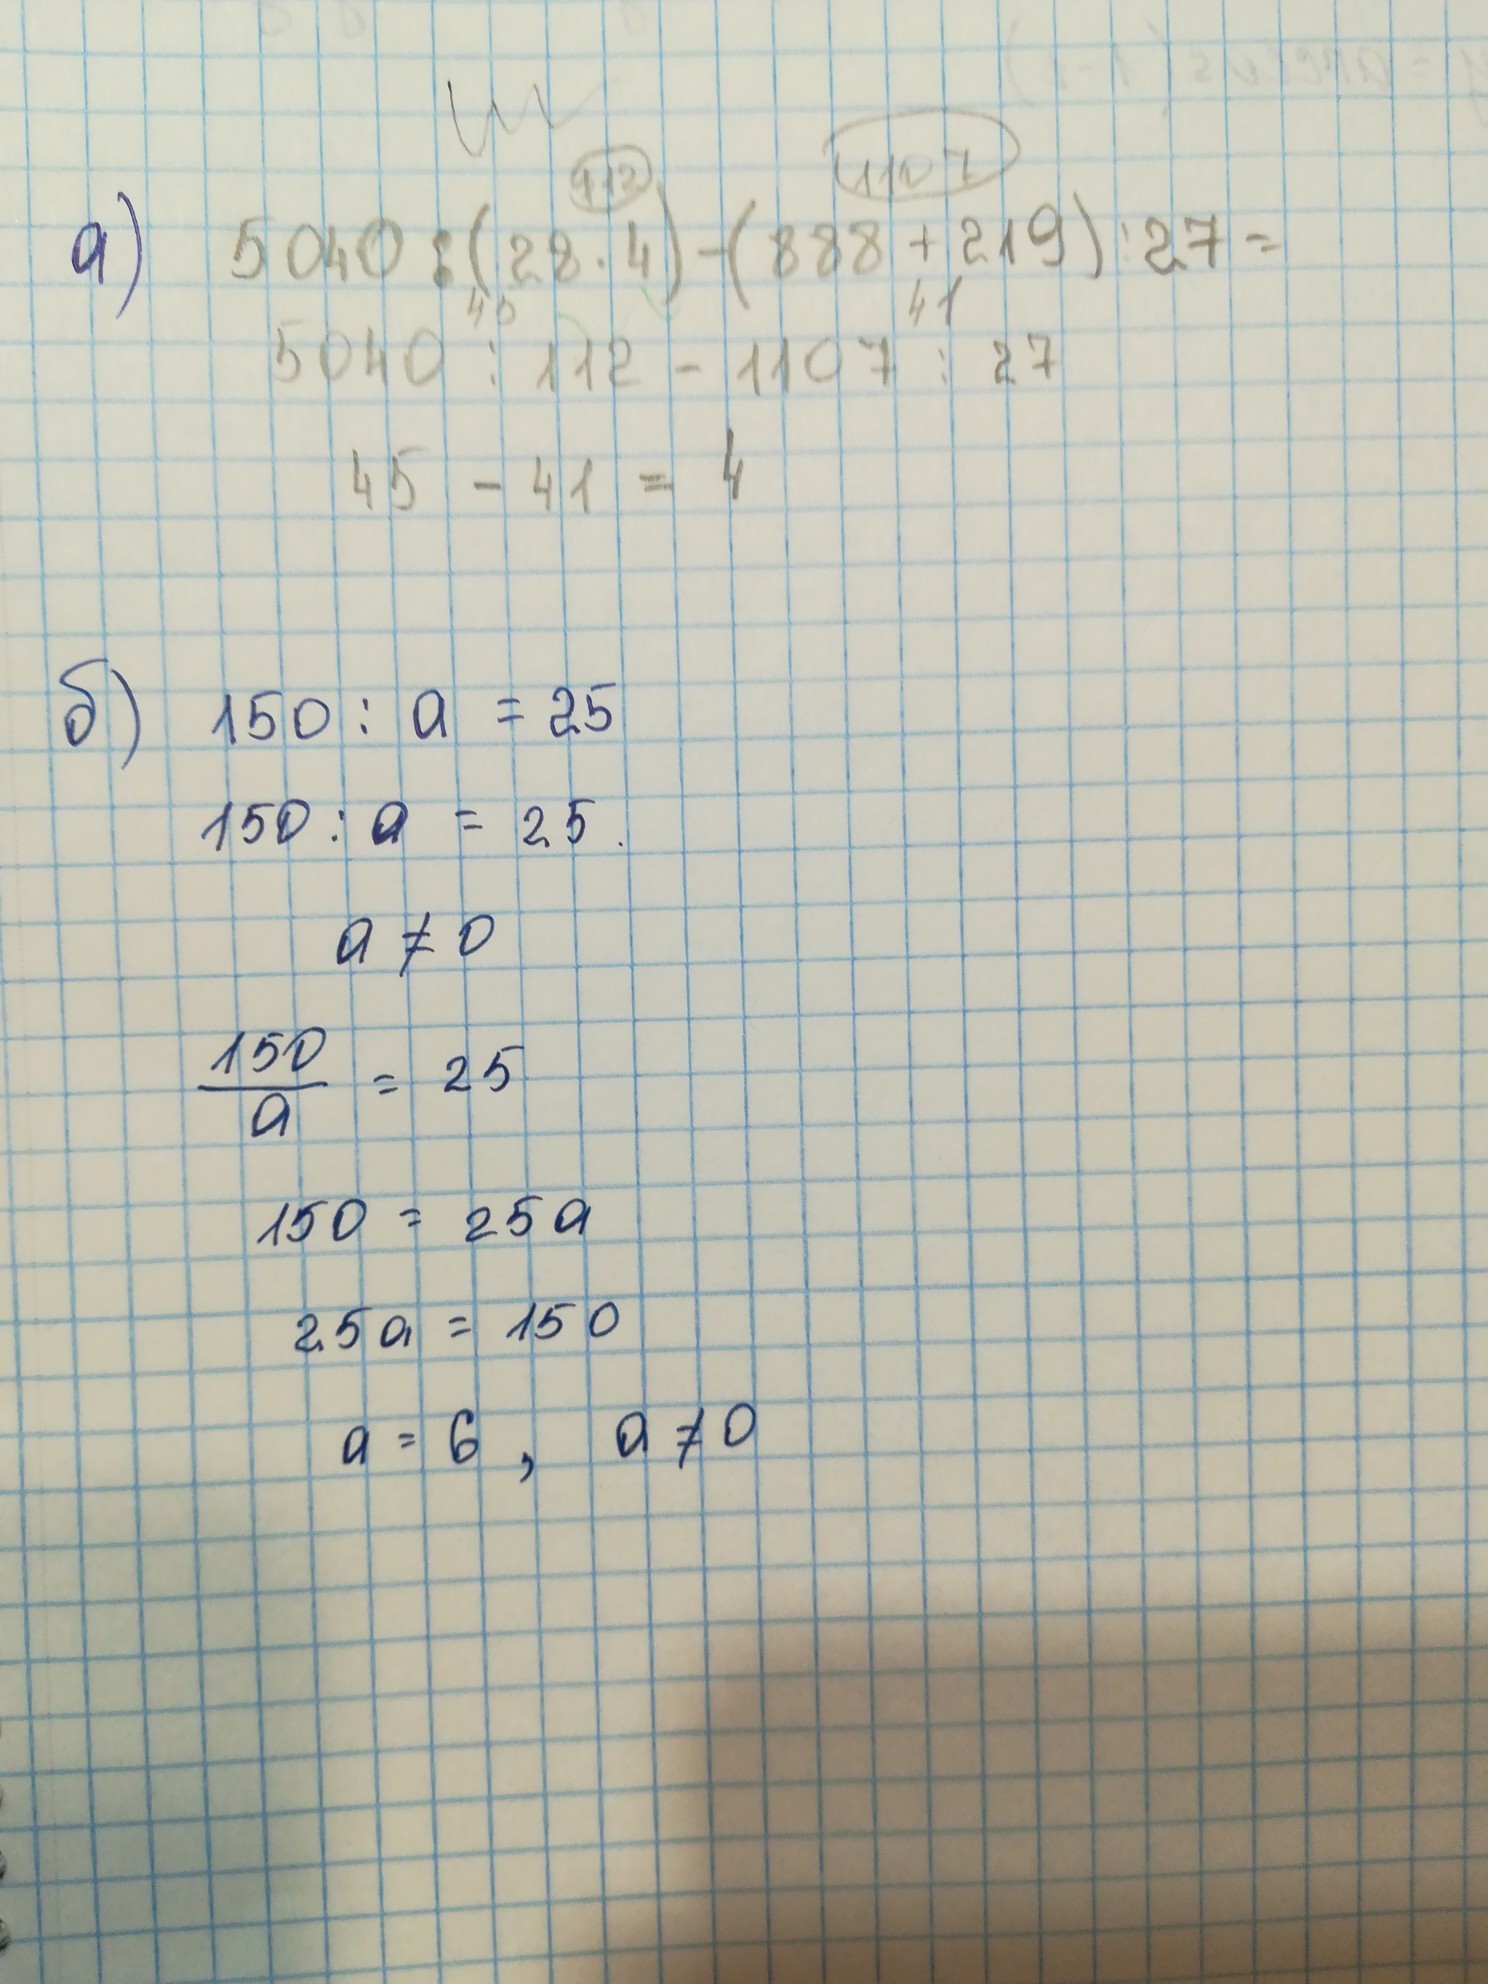 112 1107
а) 5040 : (28 · 4) - (888 + 219) : 27 =
45 41
5040 : 112 - 1107 : 27
45 - 41 = 4
б) 150 : a = 25
150 : a = 25.
a ≠ 0
150/a = 25
150 = 25a
25a = 150
a = 6 , a ≠ 0